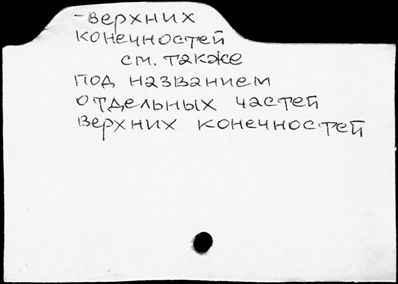 -верхних
конечностей
см. также
под названием
отдельных частей
верхних конечностей